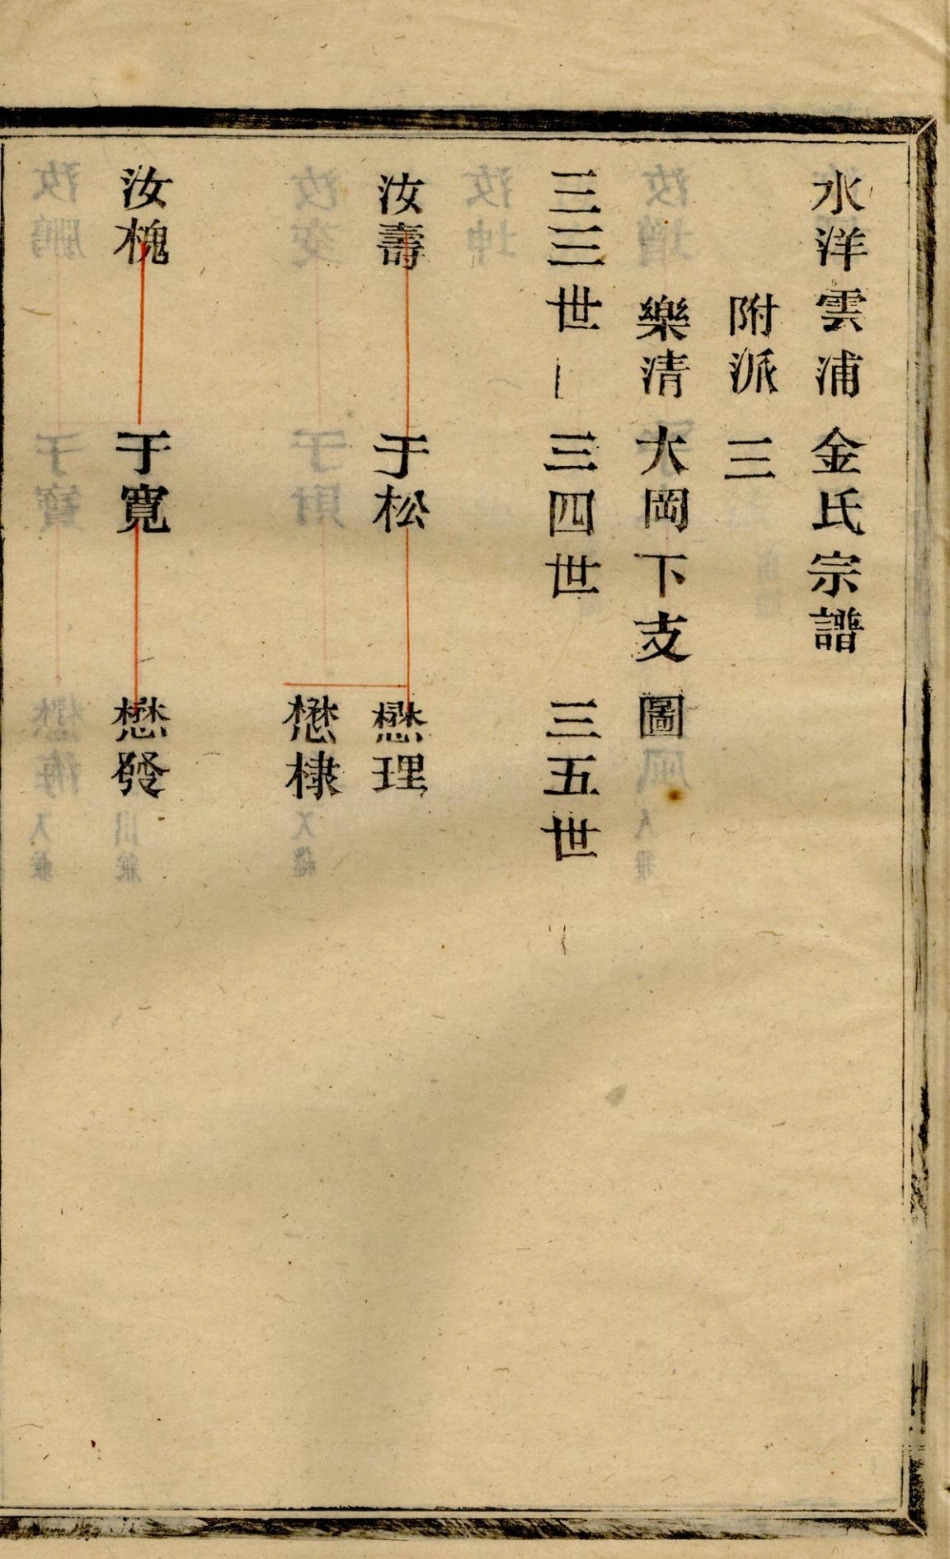 水洋雲浦金氏宗譜
附派三
樂清大岡下支圖
三三世 三四世 三五世
汝壽 于松 懋理
懋棣
汝槐 于寬 懋發